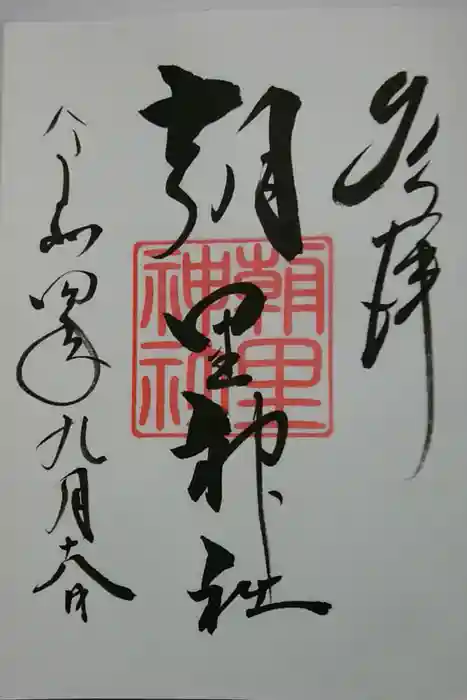 奉拝
朝里神社
朝里神社
令和四年九月十八日